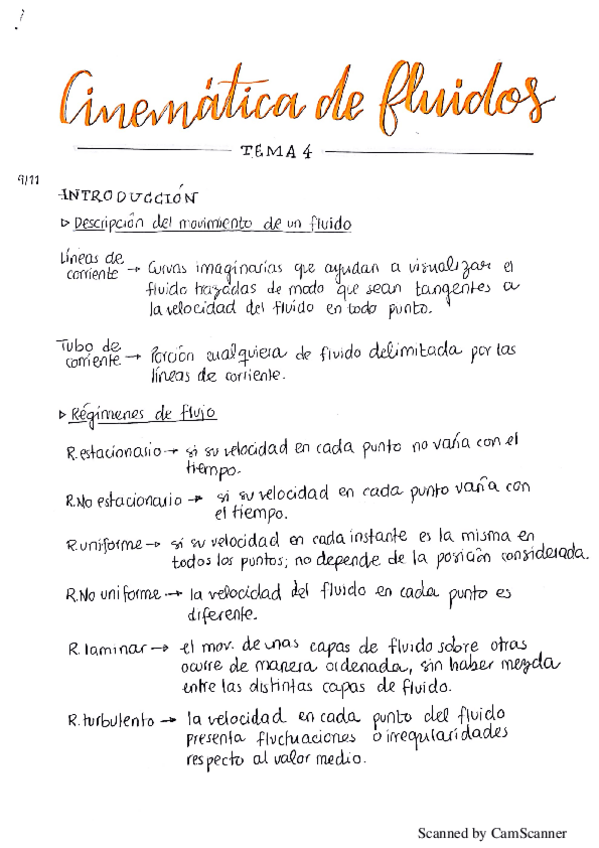 Cinemática de fluidos
TEMA 4
9/11
INTRODUCCIÓN
▷ Descripción del movimiento de un fluido
Líneas de corriente → Curvas imaginarias que ayudan a visualizar el
fluido trazadas de modo que sean tangentes a
la velocidad del fluido en todo punto.
Tubo de corriente → Porción cualquiera de fluido delimitada por las
líneas de corriente.
▷ Régimenes de flujo
R.estacionario → si su velocidad en cada punto no varía con el
tiempo.
R.No estacionario → si su velocidad en cada punto varía con
el tiempo.
R.uniforme → si su velocidad en cada instante es la misma en
todos los puntos; no depende de la posición considerada.
R.No uniforme → la velocidad del fluido en cada punto es
diferente.
R. laminar → el mov. de unas capas de fluido sobre otras
ocurre de manera ordenada, sin haber mezcla
entre las distintas capas de fluido.
R. turbulento → la velocidad en cada punto del fluido
presenta fluctuaciones o irregularidades
respecto al valor medio.
Scanned by CamScanner